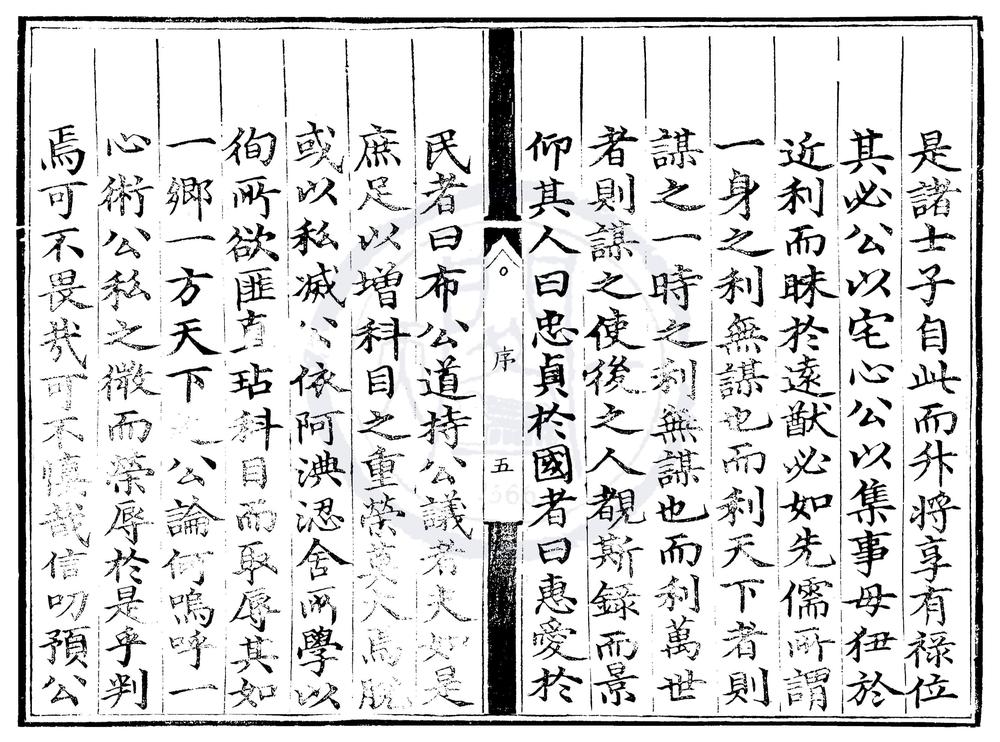 是諸士子自此而升將享有祿位
其必公以宅心公以集事毋狃於
近利而昧於遠猷必如先儒所謂
一身之利無謀也而利天下者則
謀之一時之利無謀也而利萬世
者則謀之使後之人覩斯錄而景
仰其人曰忠貞於國者曰惠愛於
序
五
民者曰布公道持公議者夫如是
庶足以增科目之重榮莫大焉脫
或以私滅公依阿淟涊舍所學以
徇所欲匪直玷科目而取辱其如
一鄉一方天下之公論何嗚呼一
心術公私之微而榮辱於是乎判
焉可不畏哉可不慎哉信叨預公